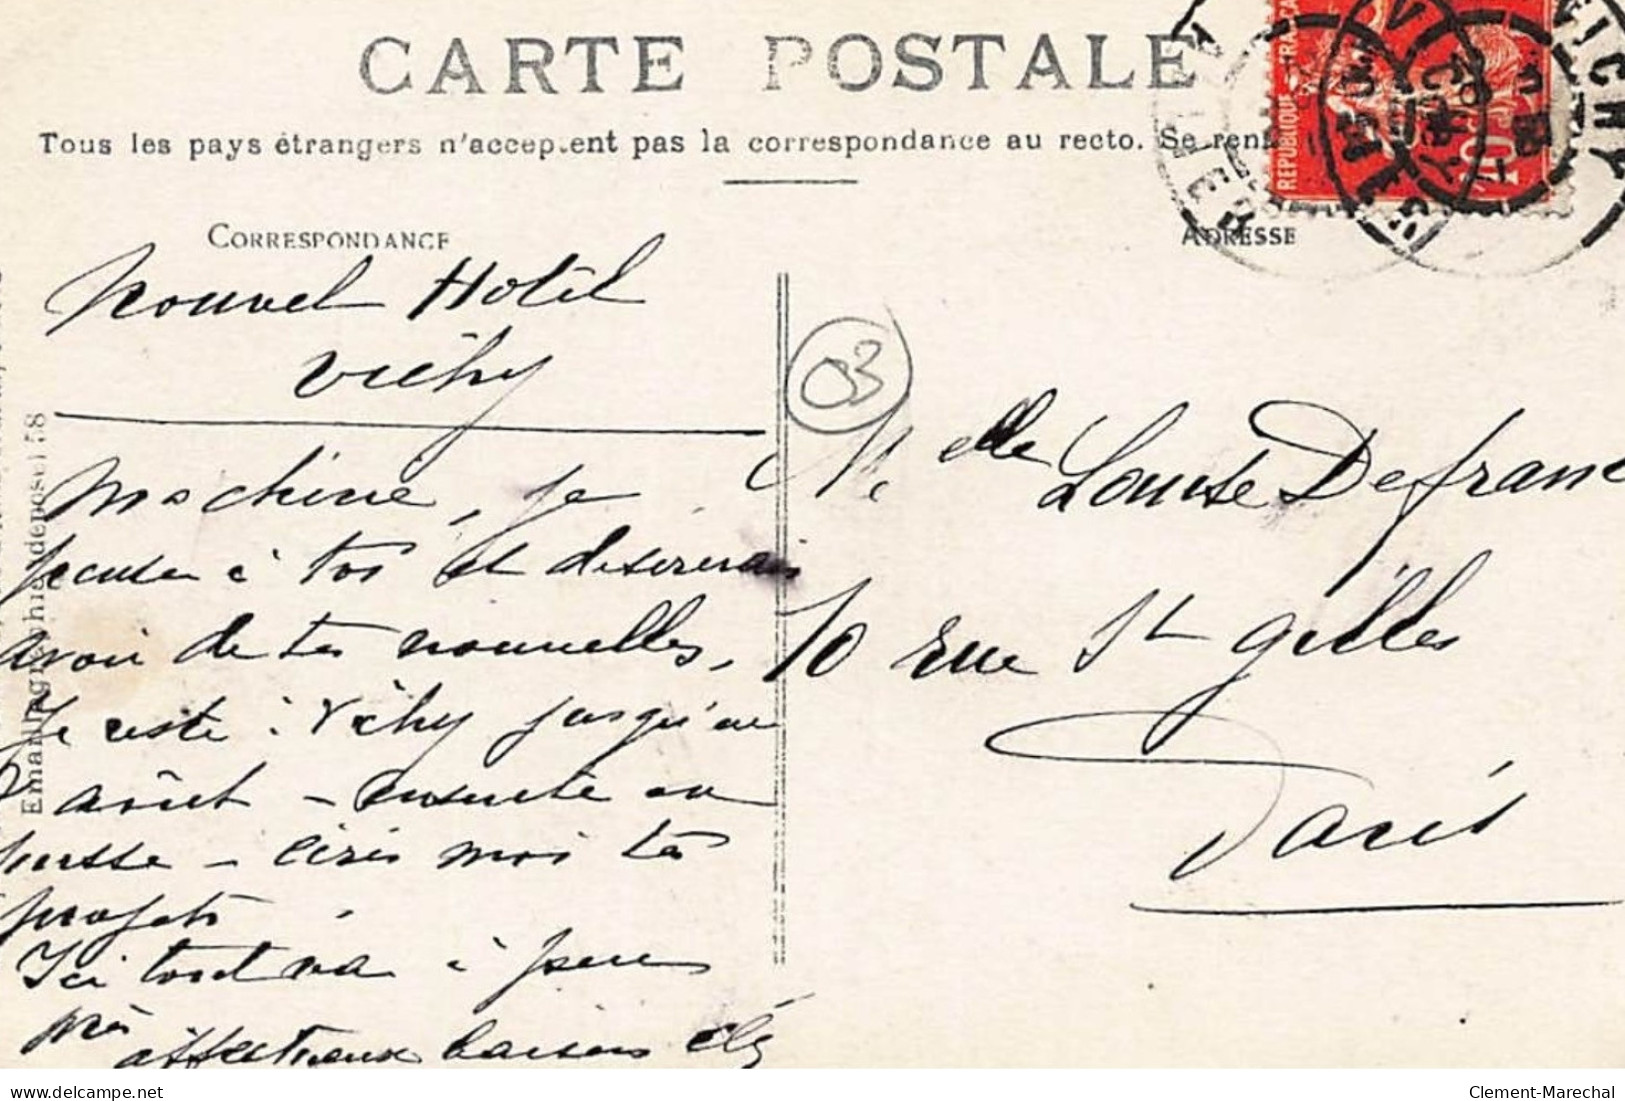 CARTE POSTALE
Tous les pays étrangers n'acceptent pas la correspondance au recto. Se rens
CORRESPONDANCE
ADRESSE
REPUBLIQUE FRANCAI
10
VICHY
VICHY
ALLIER
Nouvel Hotel
Vichy
03
Machine, je
pense à toi et désirerais
avoir de tes nouvelles,
Je reste à Vichy jusqu'au
août - ensuite on
pousse - écris moi tes
projets
Ici tout va à peu
près
affectueux baisers
Melle Louise Defranc
10 rue St Gilles
Paris
Emaillographie (déposé) 58
delcampe.net
Clement-Marechal